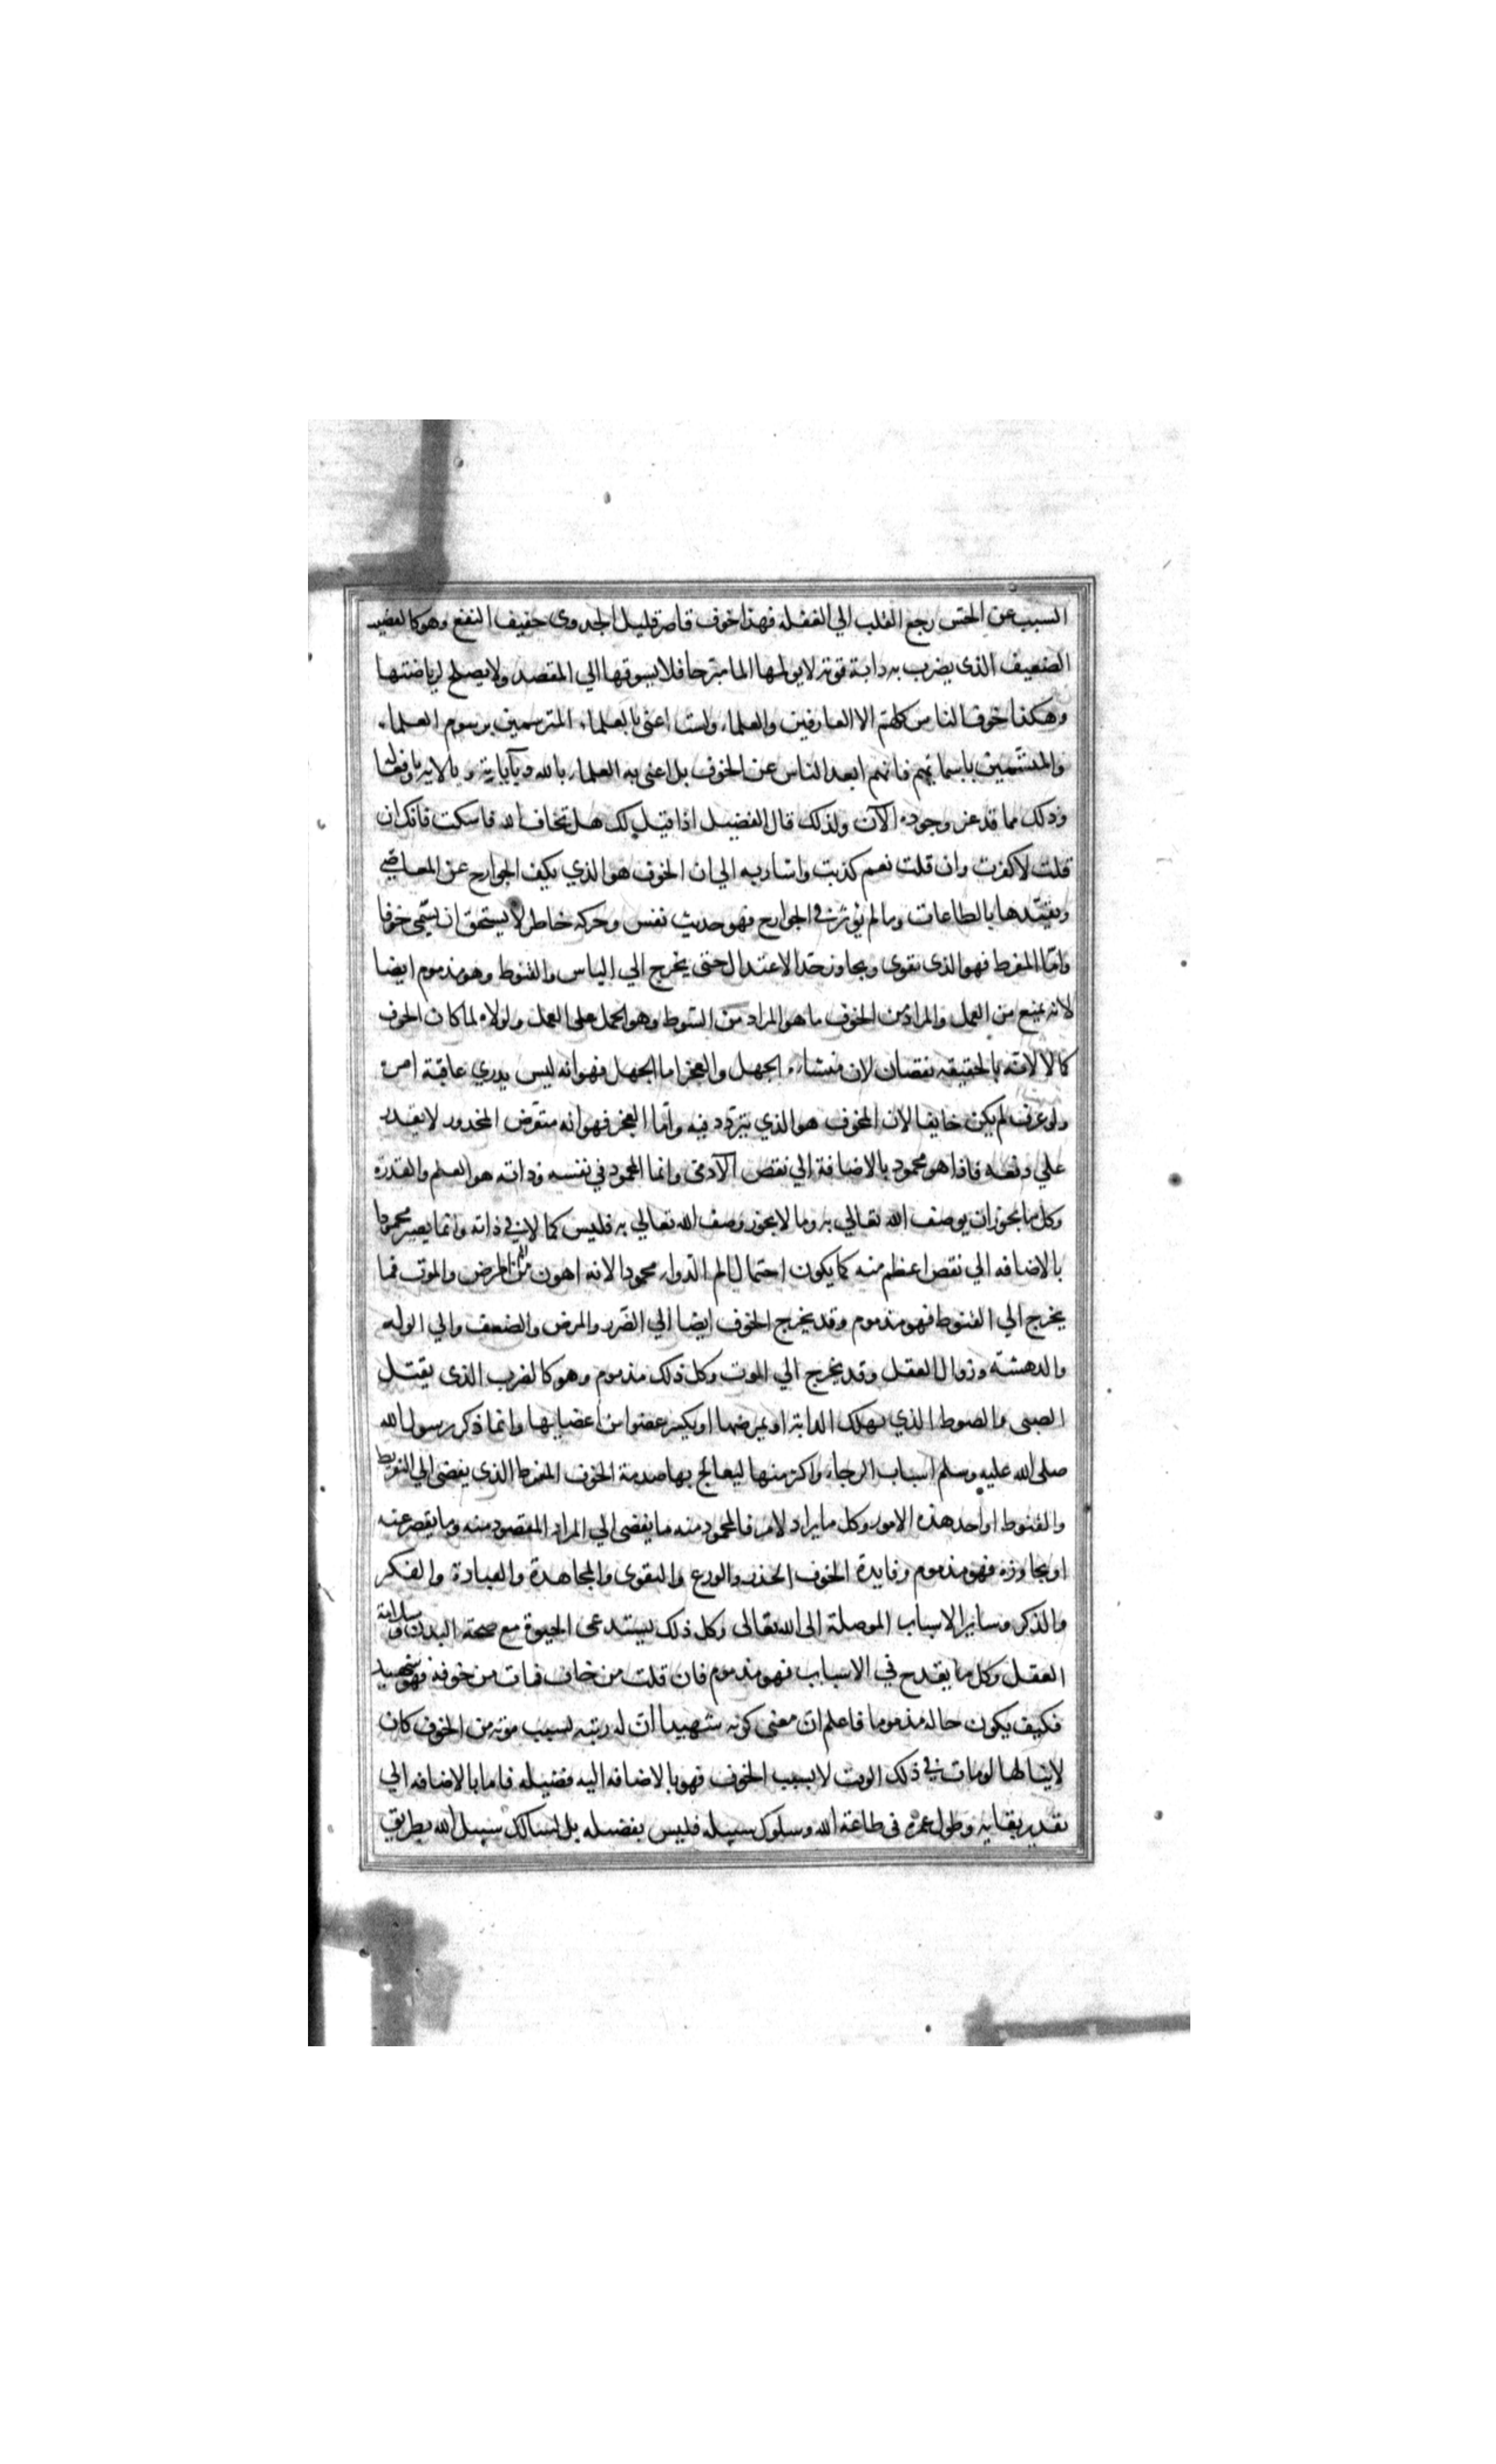 السبب عن الحس رجع القلب الي الغفله فهذا خوف قاصر قليل الجدوى خفيف النفع وهو كالقضيب
الضعيف الذى يضرب به دابة قوته لايولمها الما مبرحا فلا يسوقها الي المقصد ولا يصلح لرياضتها
وهكذا خوف الناس كلهم الا العارفين والعلماء ولست اعنى بالعلماء المترسمين برسوم العلماء
والمتسمين باسمائهم فانهم ابعد الناس عن الخوف بل اعنى به العلماء بالله وبآياته وبالايه وافعاله
وذلك مما قد عز وجوده الآن ولذلك قال الفضيل اذا قيل لك هل تخاف الله فاسكت فانك ان
قلت لا كفرت وان قلت نعم كذبت واشار به الي ان الخوف هو الذي يكف الجوارح عن المعاصي
ويقيدها بالطاعات وما لم يؤثر في الجوارح فهو حديث نفس وحركه خاطر لا يستحق ان يسمى خوفا
وامّا المفرط فهو الذى يقوى ويجاوز حدّ الاعتدال حتى يخرج الي الياس والقنوط وهو مذموم ايضا
لانه يمنع من العمل والمراد من الخوف ما هو المراد من السوط وهو الحمل على العمل ولولاه لما كان الخوف
كمالا لانه بالحقيقه نقصان لان منشاءه الجهل والعجز اما الجهل فهو انه ليس يدري عاقبة امره
ولو عرف لم يكن خايفا لان المخوف هو الذي يتردد فيه وامّا العجز فهو انه متعرض المحذور لا يقدر
علي دفعه فاذا هو محمود بالاضافة الي نقص الآدمى وانما المحمود في نفسه وذاته هو العلم والقدره
وكل ما يجوز ان يوصف الله تعالي به وما لا يجوز وصف الله تعالي به فليس كمالا في ذاته وانما يصير محمودا
بالاضافه الي نقص اعظم منه كما يكون احتمال الم الدواء محمودا لانه اهون من الم المرض والموت فما
يخرج الي القنوط فهو مذموم وقد يخرج الخوف ايضا الي الضرر والمرض والضعف والي الوله
والدهشة وزوال العقل وقد يخرج الي الموت وكل ذلك مذموم وهو كالضرب الذى يقتل
الصبى والصوط الذي يهلك الدابة او يمرضها او يكسر عضوا من اعضايها وانما ذكر رسول الله
صلى الله عليه وسلم اسباب الرجاء واكثر منها ليعالج بها صدمة الخوف المفرط الذى يفضى الي التفريط
والقنوط او احد هذه الامور وكل ما يراد لامر فالمحمود منه ما يفضى الي المراد المقصود منه وما يقصر عنه
او يجاوزه فهو مذموم وفايدة الخوف الحذر والورع والتقوى والمجاهدة والعبادة والفكر
والذكر وساير الاسباب الموصلة الى الله تعالى وكل ذلك يستدعى الحيوة مع صحة البدن وسلامة
العقل وكل ما يقدح في الاسباب فهو مذموم فان قلت من خاف فمات من خوفه فهو شهيد
فكيف يكون حاله مذموما فاعلم ان معنى كونه شهيدا ان له رتبه بسبب موته من الخوف كان
لا ينالها لو مات في ذلك الوقت لا بسبب الخوف فهو بالاضافه اليه فضيله فاما بالاضافه الي
تقدير بقايه وطول عمره فى طاعة الله وسلوك سبيله فليس بفضيله بل لسالك سبيل الله بطريق